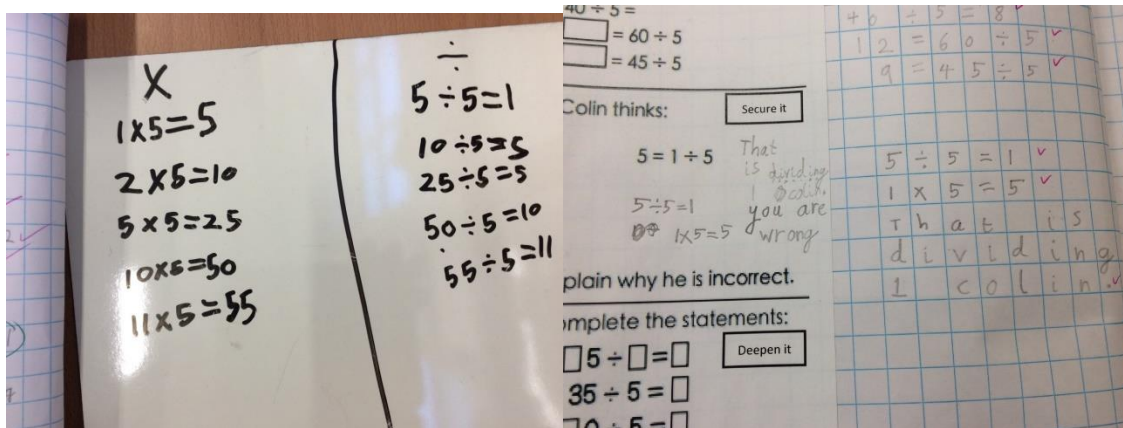 X
1x5=5
2x5=10
5x5=25
10x5=50
11x5=55
÷
5÷5=1
10÷5=5
25÷5=5
50÷5=10
55÷5=11
40÷5=
=60÷5
=45÷5
Colin thinks:
Secure it
5=1÷5
5÷5=1
1x5=5
That
is dividing
1 colin.
you are
wrong
plain why he is incorrect.
omplete the statements:
Deepen it
5÷ =
35÷5=
0÷5=
40÷5=8
12=60÷5
9=45÷5
5÷5=1
1x5=5
That is
dividing
1 colin.